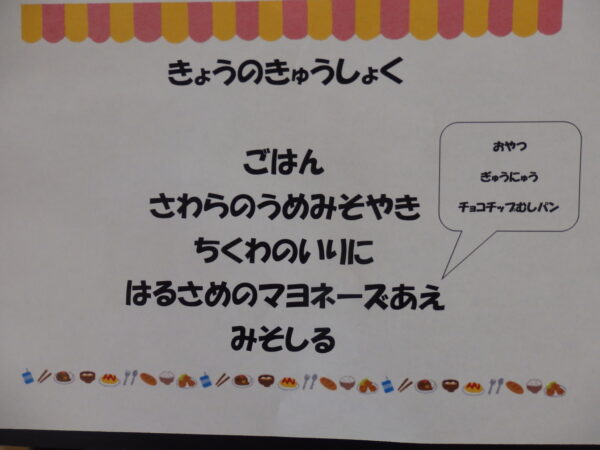 きょうのきゅうしょく
ごはん
さわらのうめみそやき
ちくわのいりに
はるさめのマヨネーズあえ
みそしる
おやつ
ぎゅうにゅう
チョコチップむしパン